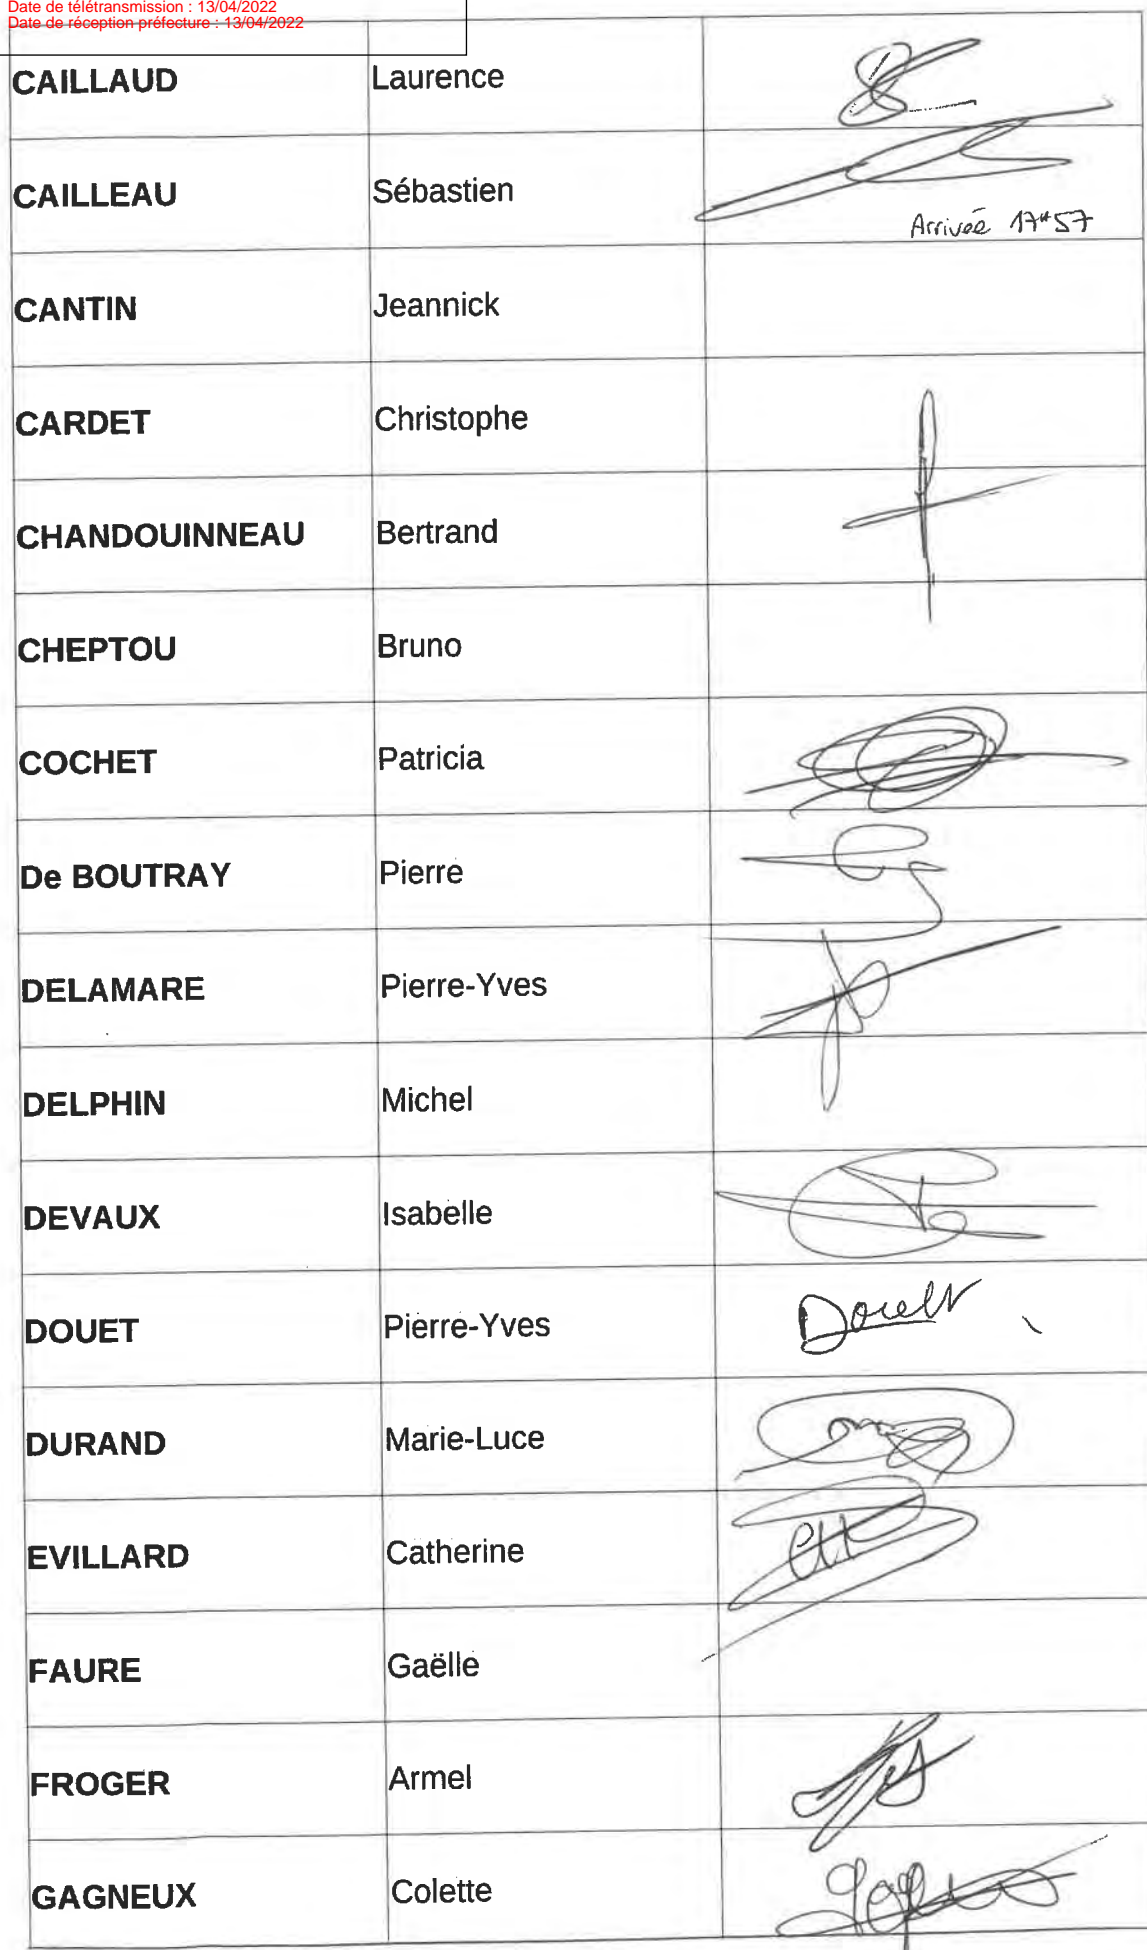 Date de télétransmission : 13/04/2022
Date de réception préfecture : 13/04/2022
CAILLAUD Laurence
CAILLEAU Sébastien
Arrivée 17H57
CANTIN Jeannick
CARDET Christophe
CHANDOUINNEAU Bertrand
CHEPTOU Bruno
COCHET Patricia
De BOUTRAY Pierre
DELAMARE Pierre-Yves
DELPHIN Michel
DEVAUX Isabelle
DOUET Pierre-Yves Douet
DURAND Marie-Luce
EVILLARD Catherine
FAURE Gaëlle
FROGER Armel
GAGNEUX Colette